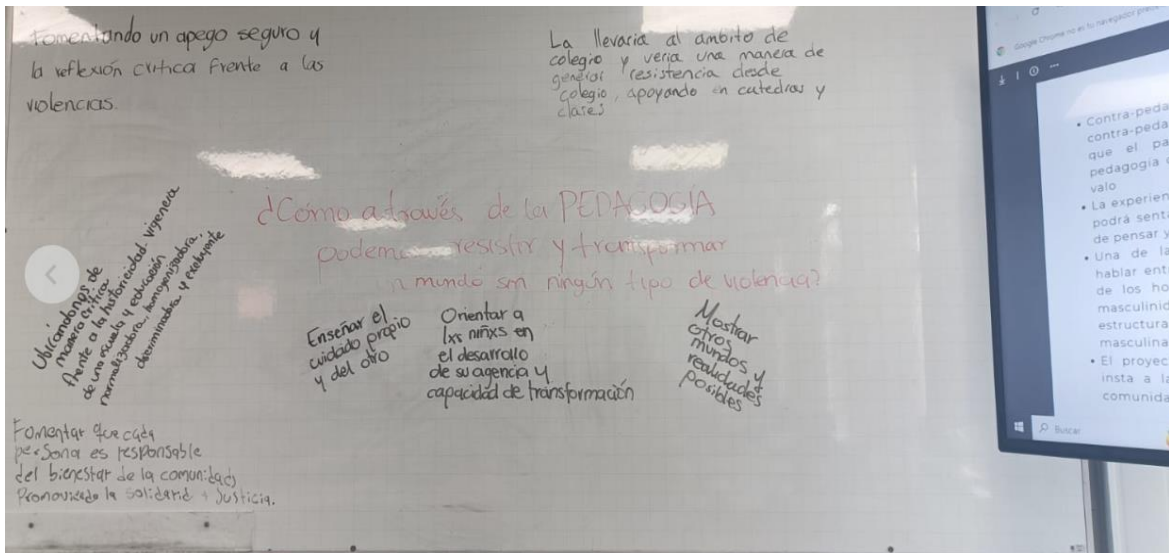 Fomentando un apego seguro y
la reflexión crítica frente a las
violencias.
La llevaria al ambito de
colegio y veria una manera de
generar resistencia desde
colegio, apoyando en catedras y
clases
¿Cómo a través de la PEDAGOGÍA
podemos resistir y transformar
un mundo sin ningún tipo de violencia?
Ubicándonos de
manera crítica
frente a la historicidad - vigencia
de una escuela y educación
normalizadora, homogenizadora,
discriminadora y excluyente
Enseñar el
cuidado propio
y del otro
Orientar a
lxs niñxs en
el desarrollo
de su agencia y
capacidad de transformación
Mostrar
otros
mundos y
realidades
posibles
Fomentar que cada
persona es responsable
del bienestar de la comunidad
Promoviendo la solidarid + Justicia.
Google Chrome no es tu navegador
• Contra-peda
contra-peda
que el pa
pedagogía
valo
• La experien
podrá sent
de pensar y
• Una de la
hablar ent
de los ho
masculinid
estructura
masculina
• El proyec
insta a la
comunida
Buscar